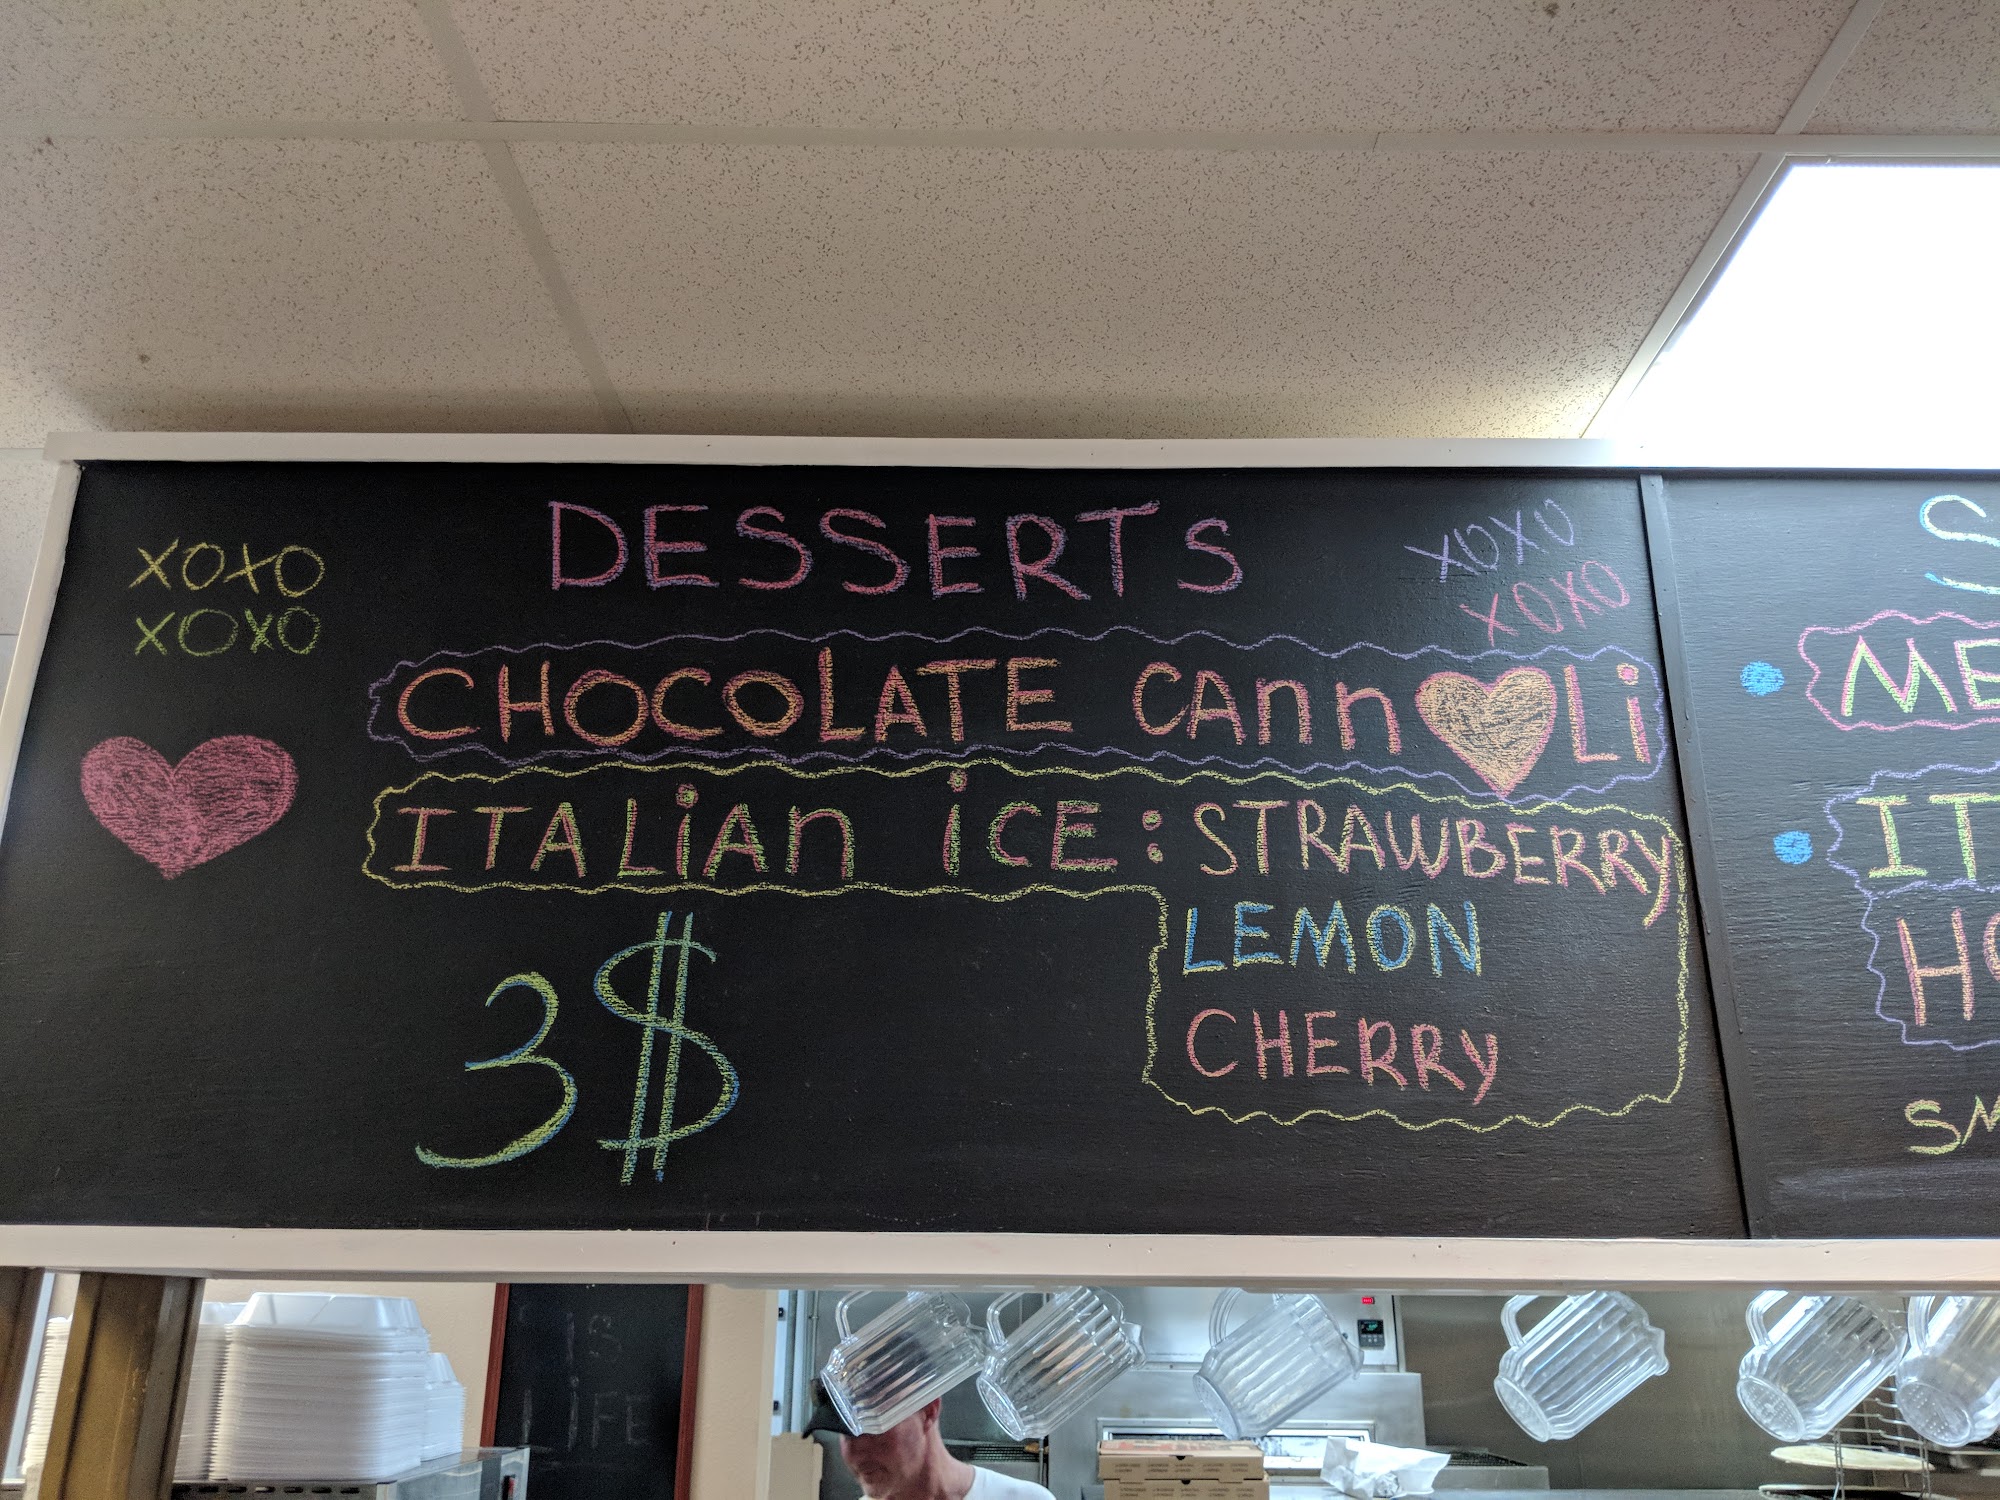 DESSERTS
XOXO
XOXO
XOXO
XOXO
CHOCOLATE CAnn♥Li
ITALiAn iCE: STRAWBERRY
LEMON
CHERRY
3$
S
ME
IT
HO
SM
IS
LIFE